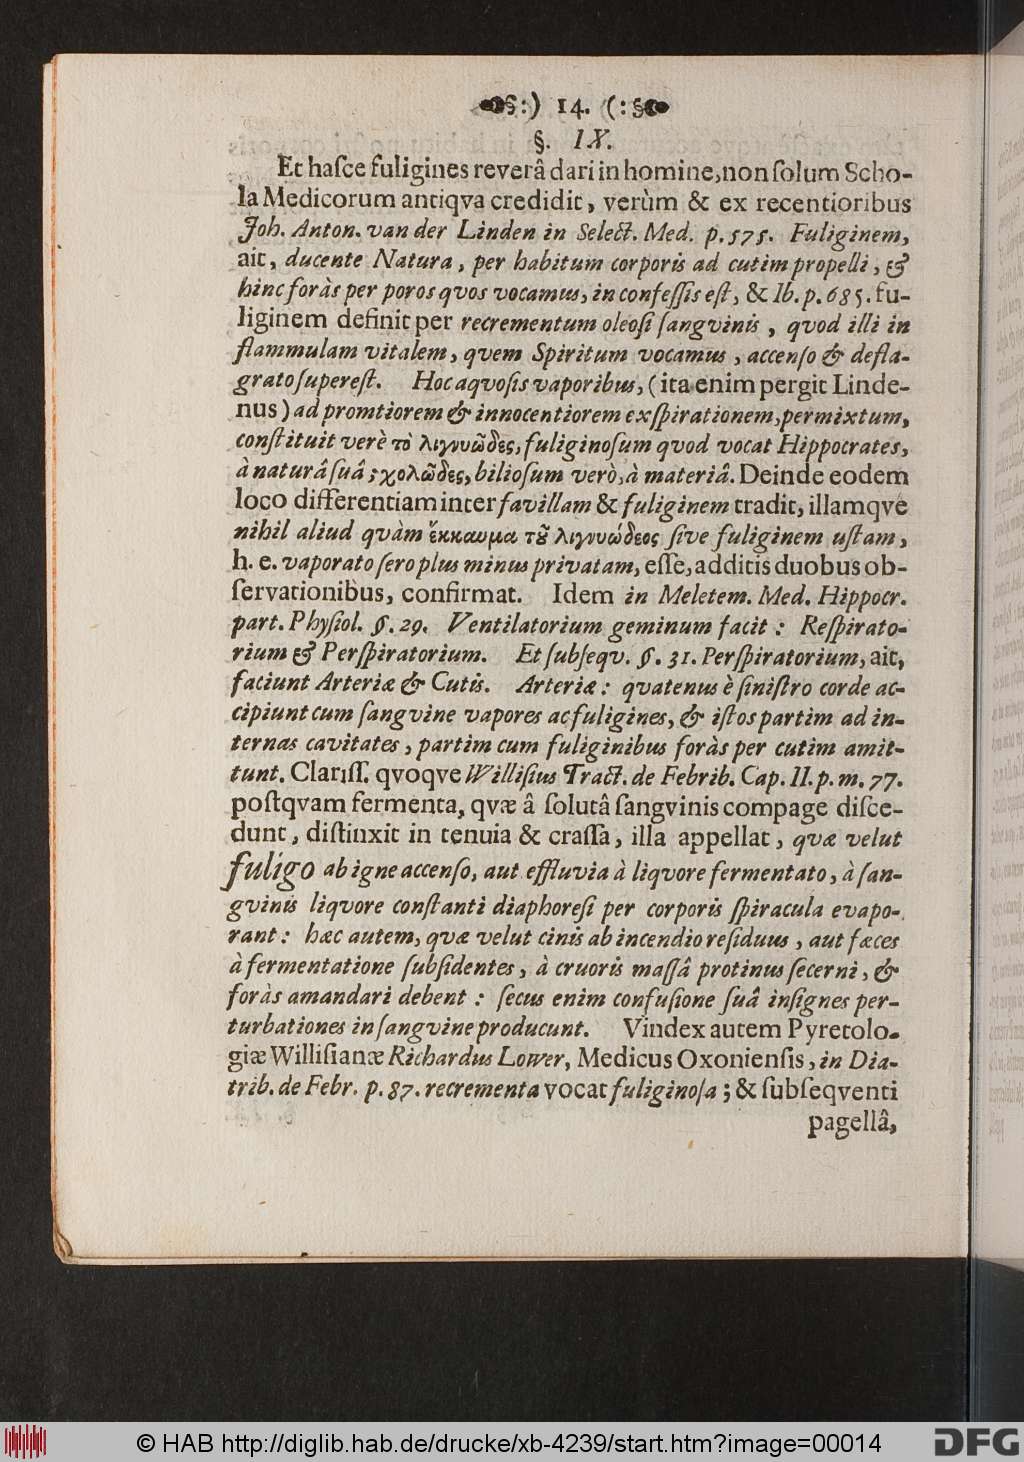 §:) 14. (:§
§. IX.
Et haſce fuligines reverâ dari in homine, non ſolum Scho-
la Medicorum antiqva credidit, verùm & ex recentioribus
Joh. Anton. van der Linden in Select. Med. p. 575. Fuliginem,
ait, ducente Natura, per habitum corporis ad cutim propelli, &
hinc foràs per poros qvos vocamus, in confeſſis eſt, & Ib. p. 685. fu-
liginem definit per recrementum oleoſi ſangvinis, qvod illi in
flammulam vitalem, qvem Spiritum vocamus, accenſo & defla-
grato ſupereſt. Hoc aqvoſis vaporibus, (ita enim pergit Linde-
nus) ad promtiorem & innocentiorem exſpirationem, permixtum,
conſtituit verè τὸ λιγνυῶδες, fuliginoſum qvod vocat Hippocrates,
à naturâ ſuâ; χολῶδες, bilioſum verò, à materiâ. Deinde eodem
loco differentiam inter favillam & fuliginem tradit, illamqve
nihil aliud qvàm ἔκκαυμα τȣ̃ λιγνυώδεος ſive fuliginem uſtam,
h. e. vaporato ſero plus minus privatam, eſſe, additis duobus ob-
ſervationibus, confirmat. Idem in Meletem. Med. Hippocr.
part. Phyſiol. §. 29. Ventilatorium geminum facit: Reſpirato-
rium & Perſpiratorium. Et ſubſeqv. §. 31. Perſpiratorium, ait,
faciunt Arteriæ & Cutis. Arteriæ: qvatenus è ſiniſtro corde ac-
cipiunt cum ſangvine vapores ac fuligines, & iſtos partim ad in-
ternas cavitates, partim cum fuliginibus foràs per cutim amit-
tunt. Clariſſ. qvoqve Williſius Tract. de Febrib. Cap. II. p. m. 77.
poſtqvam fermenta, qvæ â ſolutâ ſangvinis compage diſce-
dunt, diſtinxit in tenuia & craſſa, illa appellat, qvæ velut
fuligo ab igne accenſo, aut effluvia à liqvore fermentato, à ſan-
gvinis liqvore conſtanti diaphoreſi per corporis ſpiracula evapo-
rant: hæc autem, qvæ velut cinis ab incendio reſiduus, aut fæces
à fermentatione ſubſidentes, à cruoris maſſâ protinus ſecerni, &
foràs amandari debent: ſecus enim confuſione ſuâ inſignes per-
turbationes in ſangvine producunt. Vindex autem Pyretolo-
giæ Williſianæ Richardus Lower, Medicus Oxonienſis, in Dia-
trib. de Febr. p. 87. recrementa vocat fuliginoſa; & ſubſeqventi
pagellâ,
© HAB http://diglib.hab.de/drucke/xb-4239/start.htm?image=00014
DFG